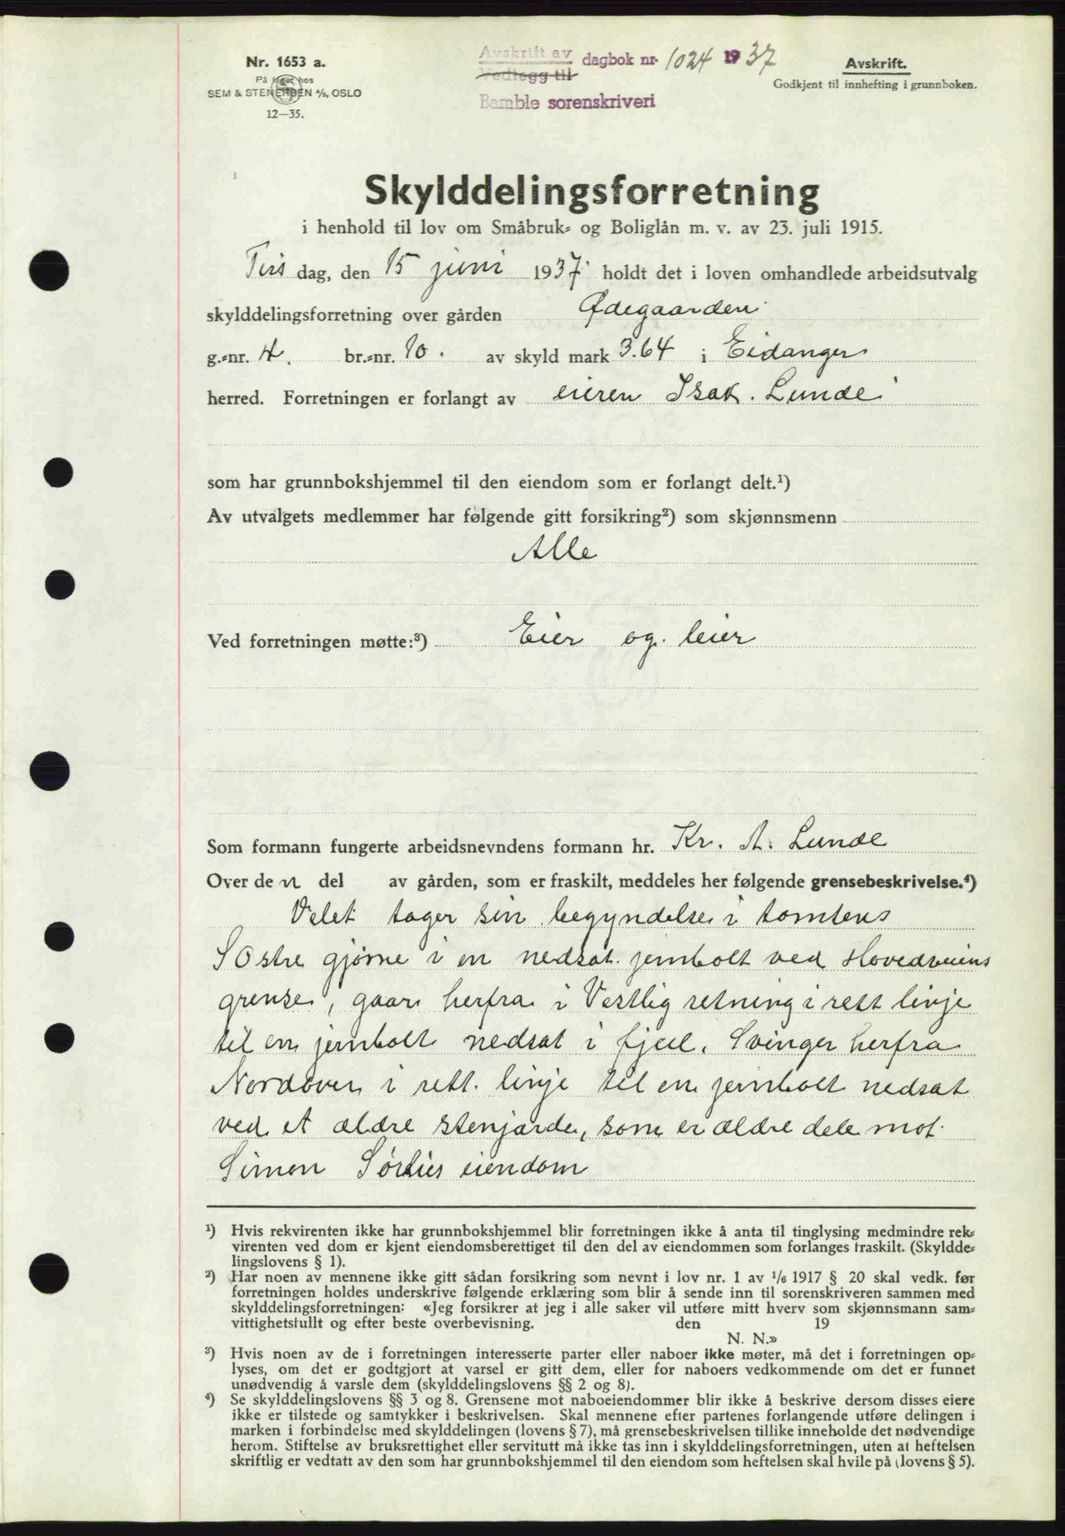 Nr. 1653 a.
På lager hos
SEM & STENERSEN A/S, OSLO
12—35.
Avskrift av
Vedlegg til
dagbok nr. 1024 1937
Bamble sorenskriveri
Avskrift.
Godkjent til innhefting i grunnboken.
Skylddelingsforretning
i henhold til lov om Småbruk- og Boliglån m. v. av 23. juli 1915.
Tirsdag, den 15 juni 1937 holdt det i loven omhandlede arbeidsutvalg
skylddelingsforretning over gården Ødegaarden
g.-nr. 4. br.-nr. 10. av skyld mark 3.64 i Eidanger
herred. Forretningen er forlangt av eieren Isak. Lunde
som har grunnbokshjemmel til den eiendom som er forlangt delt.¹)
Av utvalgets medlemmer har følgende gitt forsikring²) som skjønnsmenn
Alle
Ved forretningen møtte:³) Eier og. leier
Som formann fungerte arbeidsnevndens formann hr. Kr. A. Lunde
Over den del av gården, som er fraskilt, meddeles her følgende grensebeskrivelse.⁴)
Delet tager sin begyndelse i tomtens
S Østre gjørne i en nedsat jernbolt ved Hovedveiens
grense, gaar herfra i Vestlig retning i rett linje
til en jernbolt nedsat i fjell. Svinger herfra
Nordover i rett. linje til en jernbolt nedsat
ved et ældre stenjærde, som er ældre dele mot
Simon eiendom
¹) Hvis rekvirenten ikke har grunnbokshjemmel blir forretningen ikke å anta til tinglysing medmindre rek-
virenten ved dom er kjent eiendomsberettiget til den del av eiendommen som forlanges fraskilt. (Skyldde-
lingslovens § 1).
²) Har noen av mennene ikke gitt sådan forsikring som nevnt i lov nr. 1 av 1/6 1917 § 20 skal vedk. før
forretningen holdes underskrive følgende erklæring som blir å sende inn til sorenskriveren sammen med
skylddelingsforretningen: «Jeg forsikrer at jeg i alle saker vil utføre mitt hverv som skjønnsmann sam-
vittighetsfullt og efter beste overbevisning. den 19
N. N.»
³) Hvis noen av de i forretningen interesserte parter eller naboer ikke møter, må det i forretningen op-
lyses, om det er godtgjort at varsel er gitt dem, eller for naboers vedkommende om det er funnet
unødvendig å varsle dem (skylddelingslovens §§ 2 og 8).
⁴) Se skylddelingslovens §§ 3 og 8. Grensene mot naboeiendommer blir ikke å beskrive dersom disses eiere
ikke er tilstede og samtykker i beskrivelsen. Skal mennene efter partenes forlangende utføre delingen i
marken i forbindelse med skylddelingen (lovens § 7), må grensebeskrivelsen tillike inneholde det nødvendige
herom. Stiftelse av bruksrettighet eller servitutt må ikke tas inn i skylddelingsforretningen, uten at heftelsen
skriftlig er vedtatt av den som har grunnbokshjemmel til den eiendom som heftelsen skal hvile på (lovens § 5).